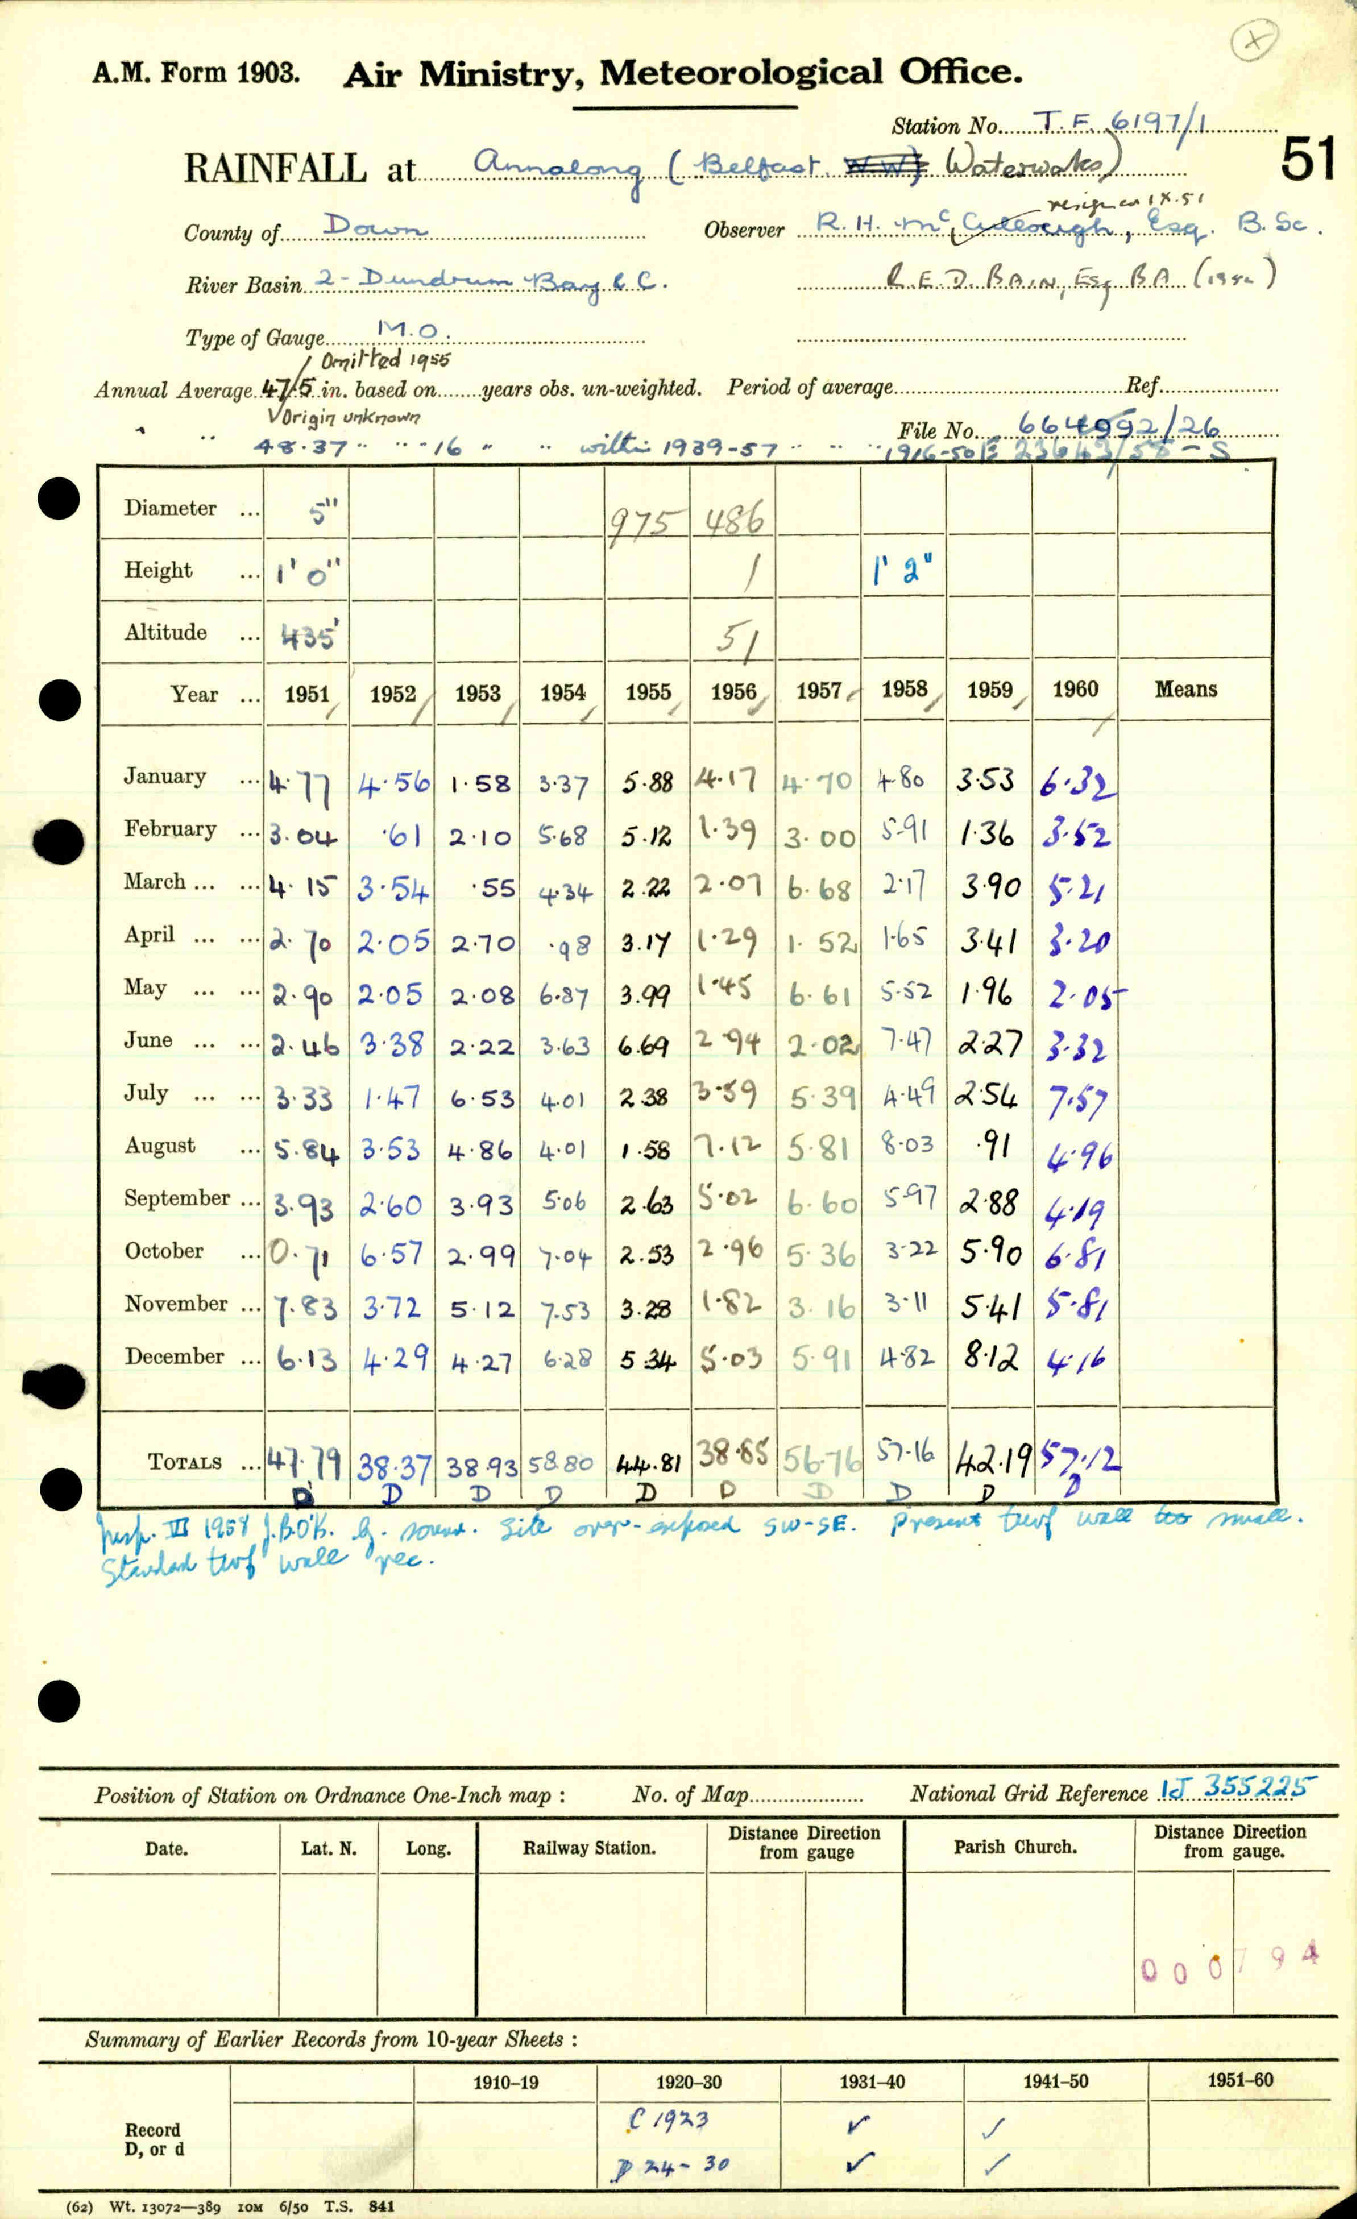 A.M. Form 1903. Air Ministry, Meteorological Office.
Station No. T.F. 6197/1
51
RAINFALL at Annalong (Belfast W W) Waterworks)
resign on 1X.51
County of Down Observer R. H. McCullough, Esq. B.Sc.
River Basin 2 - Dundrum Bay &C. R.E.D. BAIN, Esq BA (1952)
Type of Gauge M.O.
Omitted 1955
Annual Average 47.5 in. based on years obs. un-weighted. Period of average Ref.
Origin unknown
File No. 664992/26
" " 48.37 " " " 16 " " within 1939-57 " " " 1916-50 E 23643/58-S
Diameter ... 5" 975 486
Height ... 1' 0" 1 1' 2"
Altitude ... 435' 51
Year ... 1951 1952 1953 1954 1955 1956 1957 1958 1959 1960 Means
January ... 4.77 4.56 1.58 3.37 5.88 4.17 4.70 4.80 3.53 6.32
February ... 3.04 .61 2.10 5.68 5.12 1.39 3.00 5.91 1.36 3.52
March ... ... 4.15 3.54 .55 4.34 2.22 2.07 6.68 2.17 3.90 5.21
April ... ... 2.70 2.05 2.70 .98 3.17 1.29 1.52 1.65 3.41 3.20
May ... ... 2.90 2.05 2.08 6.87 3.99 1.45 6.61 5.52 1.96 2.05
June ... ... 2.46 3.38 2.22 3.63 6.69 2.94 2.02 7.47 2.27 3.32
July ... ... 3.33 1.47 6.53 4.01 2.38 3.59 5.39 4.49 2.54 7.57
August ... 5.84 3.53 4.86 4.01 1.58 7.12 5.81 8.03 .91 4.96
September ... 3.93 2.60 3.93 5.06 2.63 5.02 6.60 5.97 2.88 4.19
October ... 0.71 6.57 2.99 7.04 2.53 2.96 5.36 3.22 5.90 6.81
November ... 7.83 3.72 5.12 7.53 3.28 1.82 3.16 3.11 5.41 5.81
December ... 6.13 4.29 4.27 6.28 5.34 5.03 5.91 4.82 8.12 4.16
TOTALS ... 47.79 38.37 38.93 58.80 44.81 38.85 56.76 57.16 42.19 57.12
D D D D D D D D D D
Insp. III 1958 J.B.O'K. G. sound. Site over-exposed SW-SE. Present turf wall too small.
Standard turf wall rec.
Position of Station on Ordnance One-Inch map : No. of Map National Grid Reference IJ 355225
Date. Lat. N. Long. Railway Station. Distance Direction from gauge Parish Church. Distance Direction from gauge.
000794
Summary of Earlier Records from 10-year Sheets :
1910–19 1920–30 1931–40 1941–50 1951–60
Record C 1923 ✓ ✓
D, or d D 24-30 ✓ ✓
(62) Wt. 13072—389 10M 6/50 T.S. 841